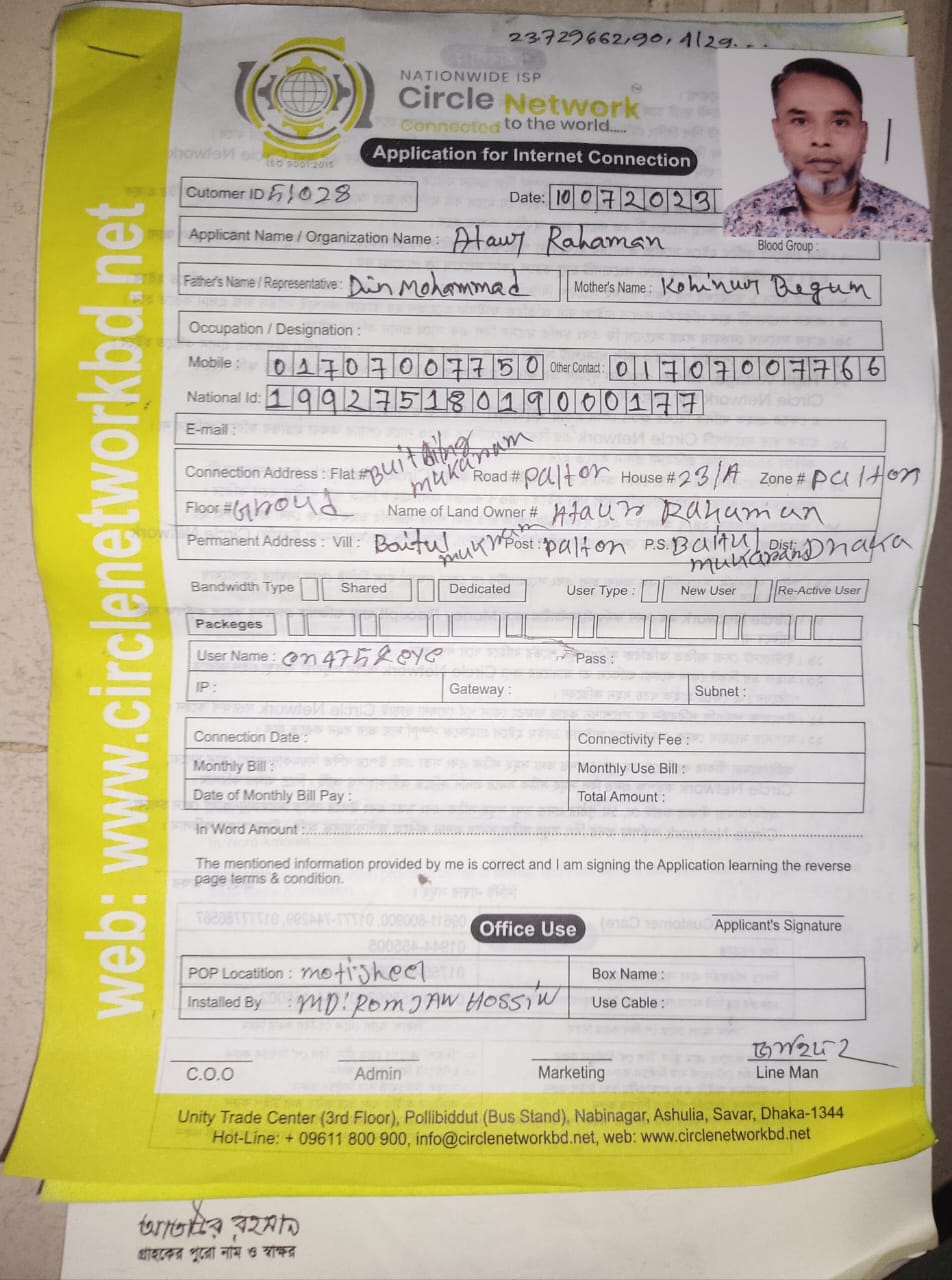 23.729662,90,4129...
NATIONWIDE ISP
Circle Network
Connected to the world.....
ISO 9001:2015
Application for Internet Connection
Cutomer ID 51028
Date: 10 0 7 2 0 2 3
Applicant Name / Organization Name : Ataur Rahaman
Blood Group :
Father's Name / Representative : Din Mohammad Mother's Name : Kohinur Begum
Occupation / Designation :
Mobile : 01707007750 Other Contact : 01707007766
National Id: 19927518019000177
E-mail :
Connection Address : Flat # Road # palton House # 23/A Zone # palton
Floor # Groud Name of Land Owner # Ataur Rahaman
Permanent Address : Vill : Baitul mukram Post : palton P.S. Baitul mukaram Dist: Dhaka
Bandwidth Type Shared Dedicated User Type : New User Re-Active User
Packeges
User Name : Pass :
IP : Gateway : Subnet :
Connection Date : Connectivity Fee :
Monthly Bill : Monthly Use Bill :
Date of Monthly Bill Pay : Total Amount :
In Word Amount :
The mentioned information provided by me is correct and I am signing the Application learning the reverse
page terms & condition.
Applicant's Signature
Office Use
POP Locatition : motijheel Box Name :
Installed By : MD: ROMJAN HOSSIN Use Cable :
C.O.O Admin Marketing Line Man
Unity Trade Center (3rd Floor), Pollibiddut (Bus Stand), Nabinagar, Ashulia, Savar, Dhaka-1344
Hot-Line: + 09611 800 900, info@circlenetworkbd.net, web: www.circlenetworkbd.net
web: www.circlenetworkbd.net
আতাউর রহমান
গ্রাহকের পুরো নাম ও স্বাক্ষর